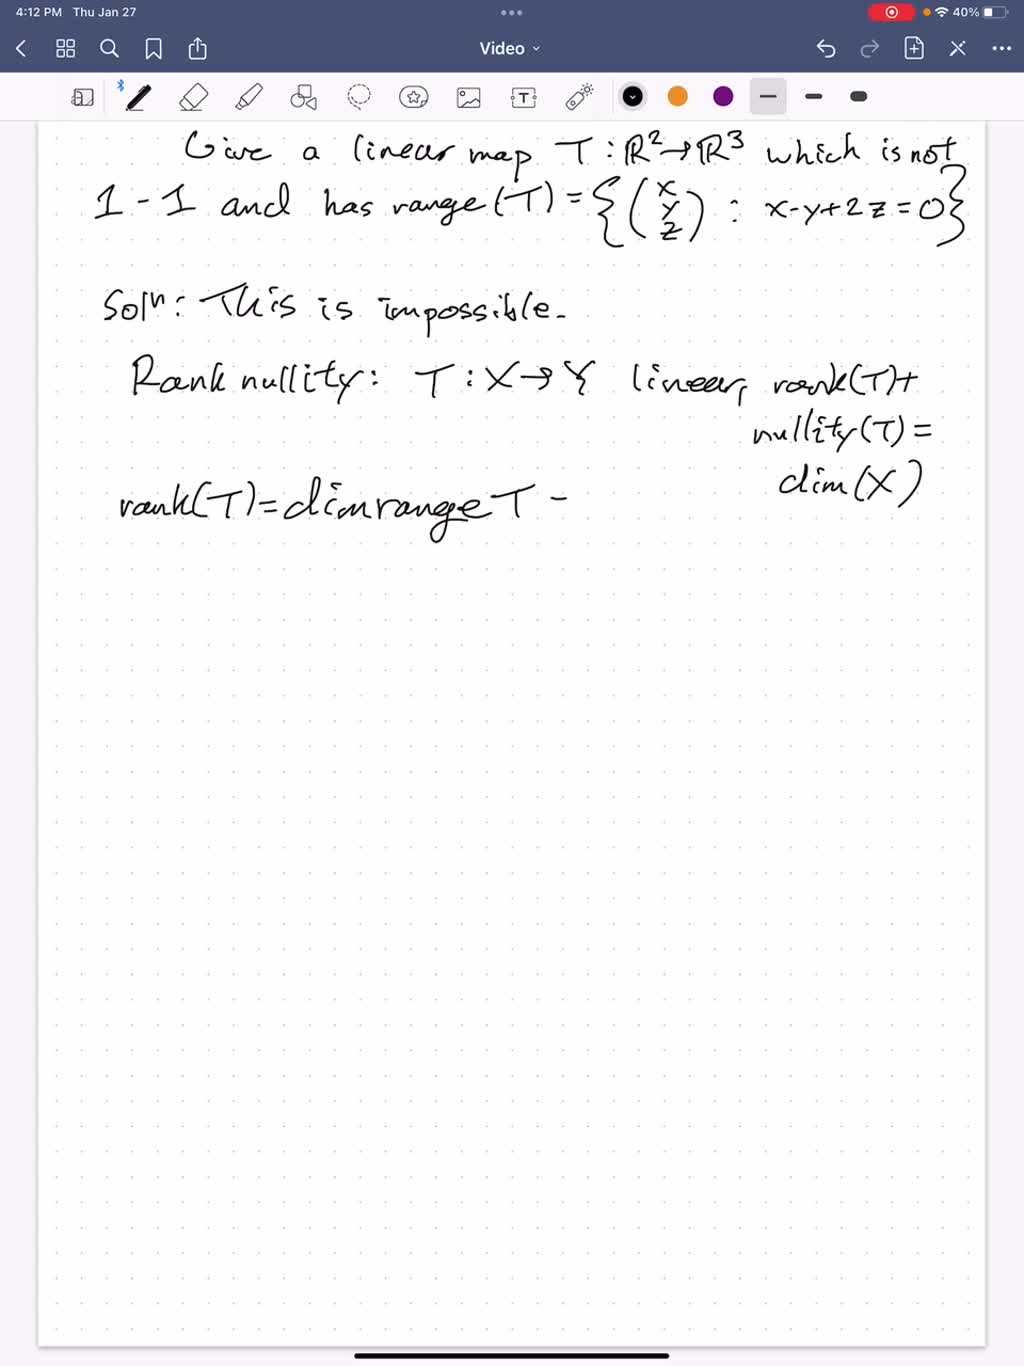 4:12 PM Thu Jan 27
40%
Video
Give a linear map T : ℝ² → ℝ³ which is not
1 - 1 and has range(T) = {(x y z) : x-y+2z=0}
Solⁿ: This is impossible.
Rank nullity: T : X → Y linear, rank(T)+
nullity(T) =
dim(X)
rank(T) = dim range T -